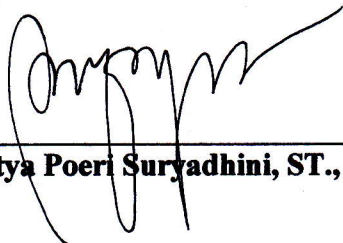 tya Poeri Suryadhini, ST.,